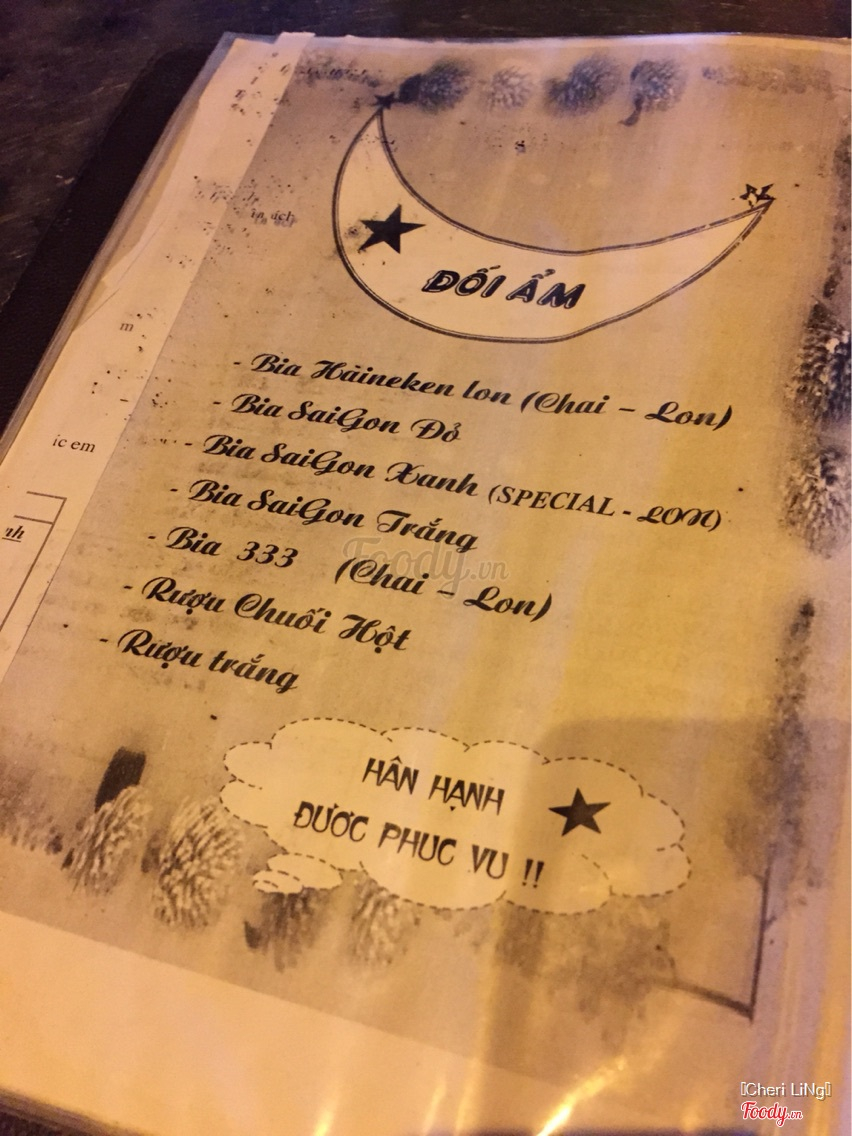 ĐỐI ẨM
- Bia Hàineken lon (Chai – Lon)
- Bia SaiGon Đỏ
- Bia SaiGon Xanh (SPECIAL - LON)
- Bia SaiGon Trắng
- Bia 333 (Chai – Lon)
- Rượu Chuối Hột
- Rượu trắng
HÂN HẠNH
ĐƯƠC PHUC VU !!
m
ic em
Foody.vn
[Cheri LiNg]
Foody.vn